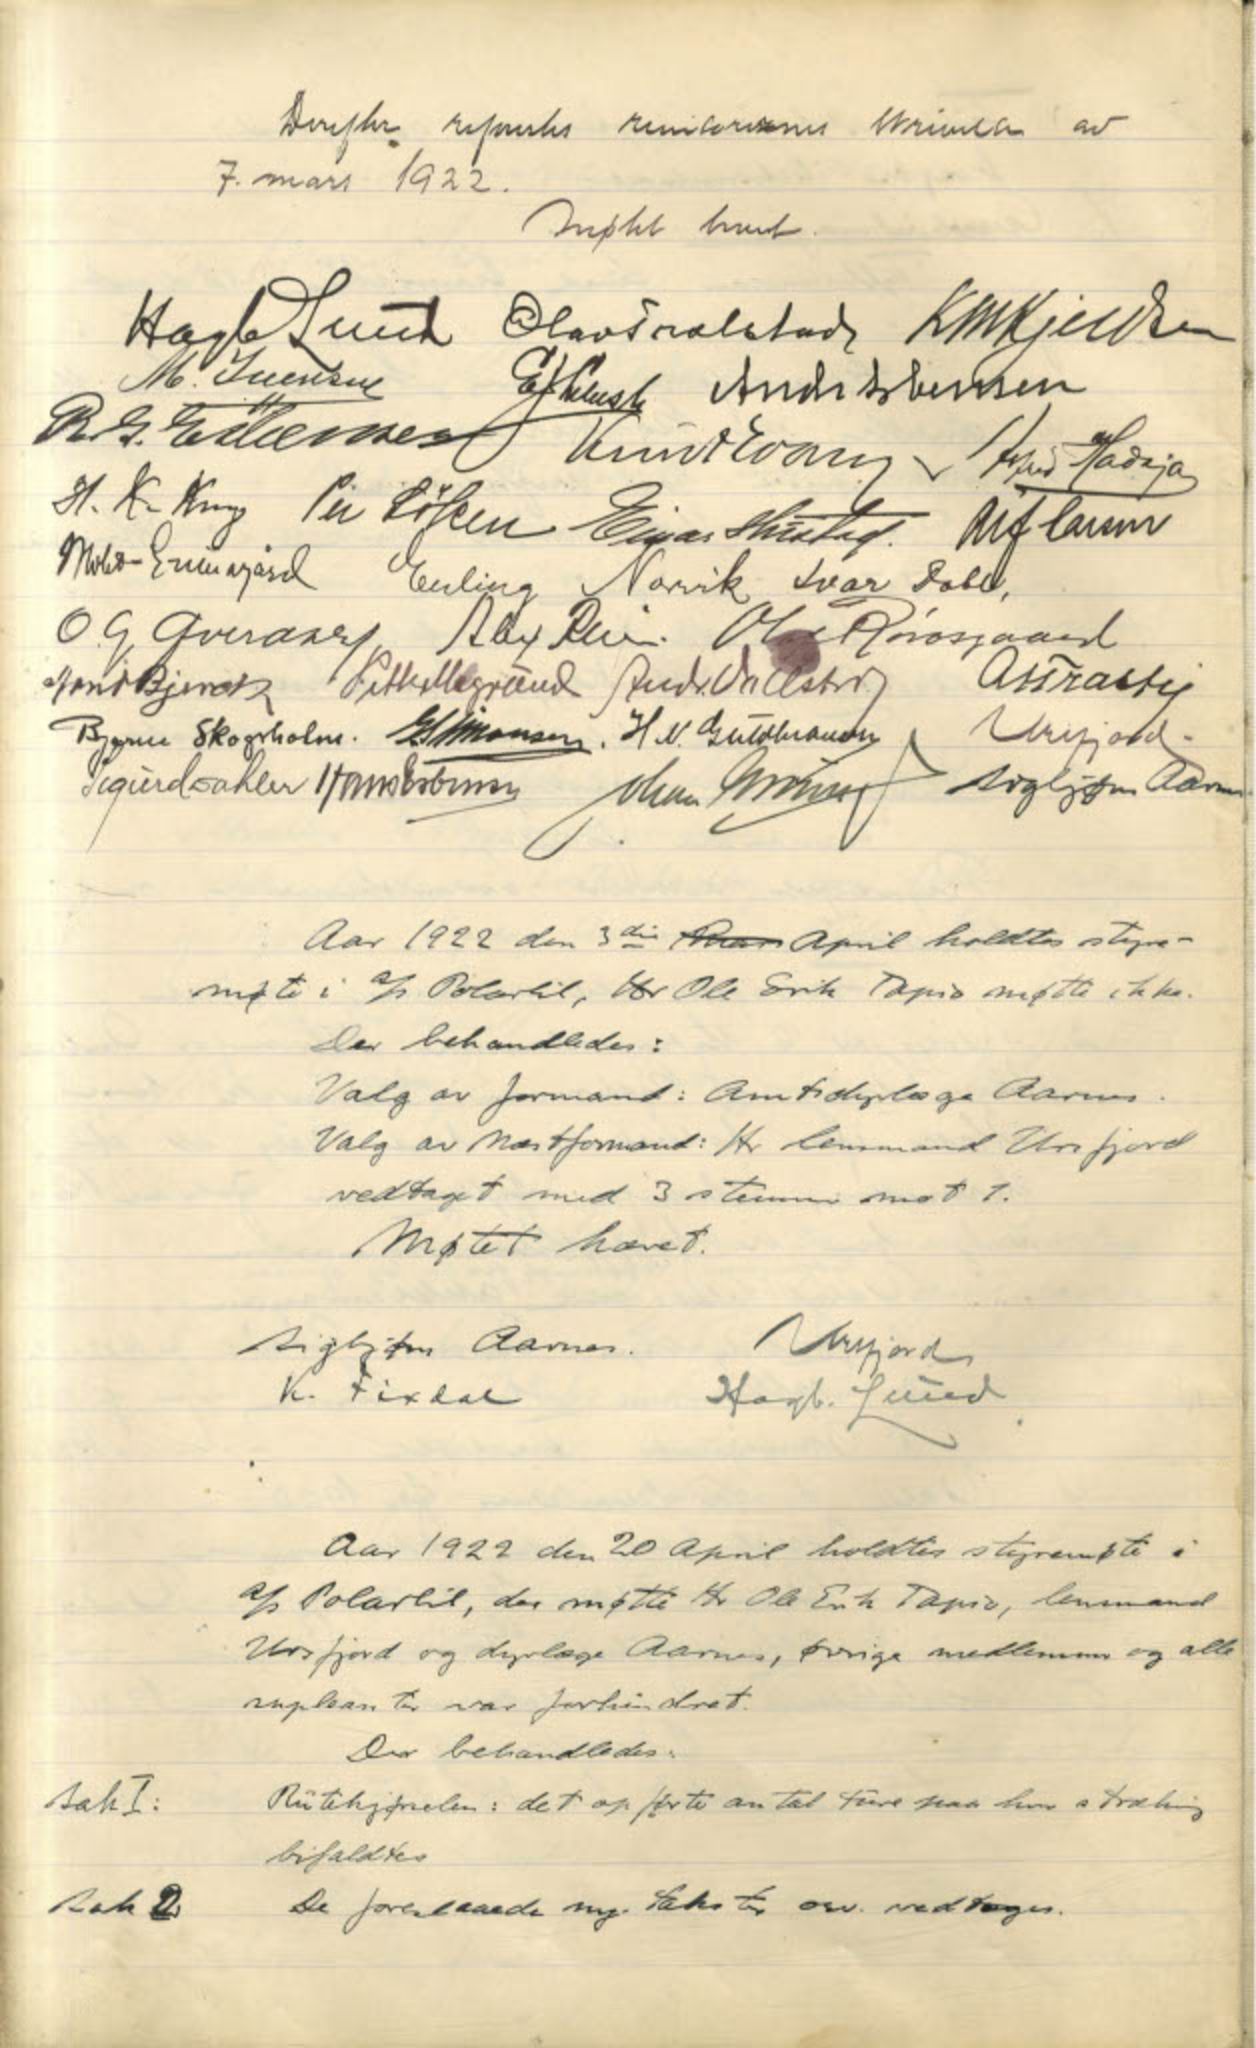 Derefter refereres revisorernes skrivelse av
7. mars 1922.
Møtet hævet.
Hagb Lund Olav Trælstad K M Kjeldsen
M. Iversen Andr Esbensen
R. G. Knut Wang Hadsja
H. K. King Per Einar Alf Larsen
Erling Norvik Ivar Dahl,
O. G. Alex Ole Røvosgaard
Bjervoks Andr
Bjarne Skogsholm. E Simonsen. H. N. Guldbransen Ursfjord.
Sigurd Dahler Hans Esbensen Johan Sigbjørn Aarnes
Aar 1922 den 3die April holdtes styre-
møte i A/S Polarbil, Hr Ole Erik Tapio møtte ikke.
Der behandledes:
Valg av formand: Amtsdyrlæge Aarnes.
Valg av Næstformand: Hr lensmand Ursfjord
vedtaget med 3 stemmer mot 1.
Møtet hævet.
Sigbjørn Aarnes. Ursfjord
K. Fixdal Hagb. Lund
Aar 1922 den 20 April holdtes styremøte i
A/S Polarbil, der møtte Hr Ole Erik Tapio, lensmand
Ursfjord og dyrlæge Aarnes, øvrige medlemmer og alle
supleanter var forhindret.
Der behandledes:
Sak I: Rutekjørselen: det opførte antal ture paa hver strækning
bifaldtes
Sak 2. De foreslaaede nye takster osv. vedtoges.